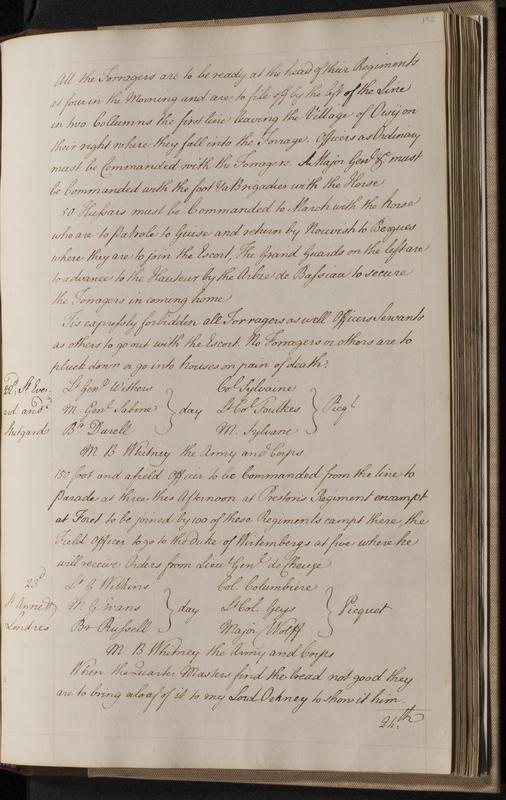 196
All the Forragers are to be ready at the head of their Regiments
at four in the Morning and are to file off by the left of the Line
in two Collumns the first line leaving the Village of Oisy on
their right where they fall into the Forrage. Officers as Ordinary
must be Commanded with the Forragers. A Major Gen.l &c must
be Commanded with the foot & a Brigadier with the Horse
50 Hussars must be Commanded to March with the horse
who are to Patrole to Guise and return by Nouvish to Bergues
where they are to join the Escort, The Grand Guards on the left are
to advance to the Hauteur by the Arbre de Bassiau to secure
the Forragers in coming home
Tis expressly forbidden all Forragers as well Officers Servants
as others to go out with the Escort. No Forragers or others are to
pluck down or go into houses on pain of death.
22d. St Ever- Lt Genl Withers Col Sylvaine
ard and M. Genl Sabine } day Lt Col Foulkes } Piqt
Stutgard Br Durell M. Sylvane
M B Whitney the Army and Corps
150 foot and a field Officer to be Commanded from the line to
Parade at three this Afternoon at Prestons Regiment encampt
at Foret to be joined by 100 of these Regiments campt there, the
Field Officer to go to the Duke of Wirtembergs at five where he
will receive Orders from Lieut Genl de
23d Lt G Wilkins Col. Columbiere
St Annett M G Evans } day Lt Col. Geys } Picquet
Londres Br Russell Major Wolff
M B Whitney the Army and Corps
When the Quarter Masters find the bread not good they
are to bring a loaf of it to my Lord Orkney to show it him.
24.th